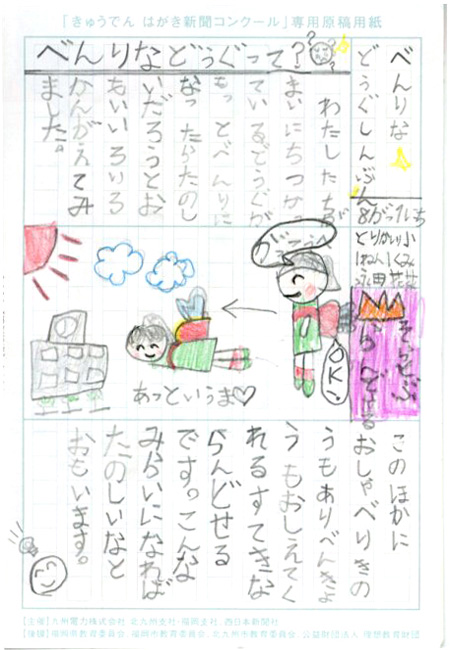 「きゅうでん はがき新聞コンクール」専用原稿用紙
べんりな
どうぐしんぶん
8がつ1にち
とりかい小
1ねん1くみ
べんりなどうぐって?
わたしたちが
まいにちつかっ
ているどうぐが
もっとべんりに
なったらたのし
いだろうとお
もいいろいろ
かんがえてみ
ました。
そらとぶ
らんどせる
のびーる
OK!
あっというま♡
このほかに
おしゃべりきの
うもありべんきょ
うもおしえてく
れるすてきな
らんどせる
です。こんな
みらいになれば
たのしいなと
おもいます。
【主催】九州電力株式会社 北九州支社・福岡支社、西日本新聞社
【後援】福岡県教育委員会、福岡市教育委員会、北九州市教育委員会、公益財団法人 理想教育財団